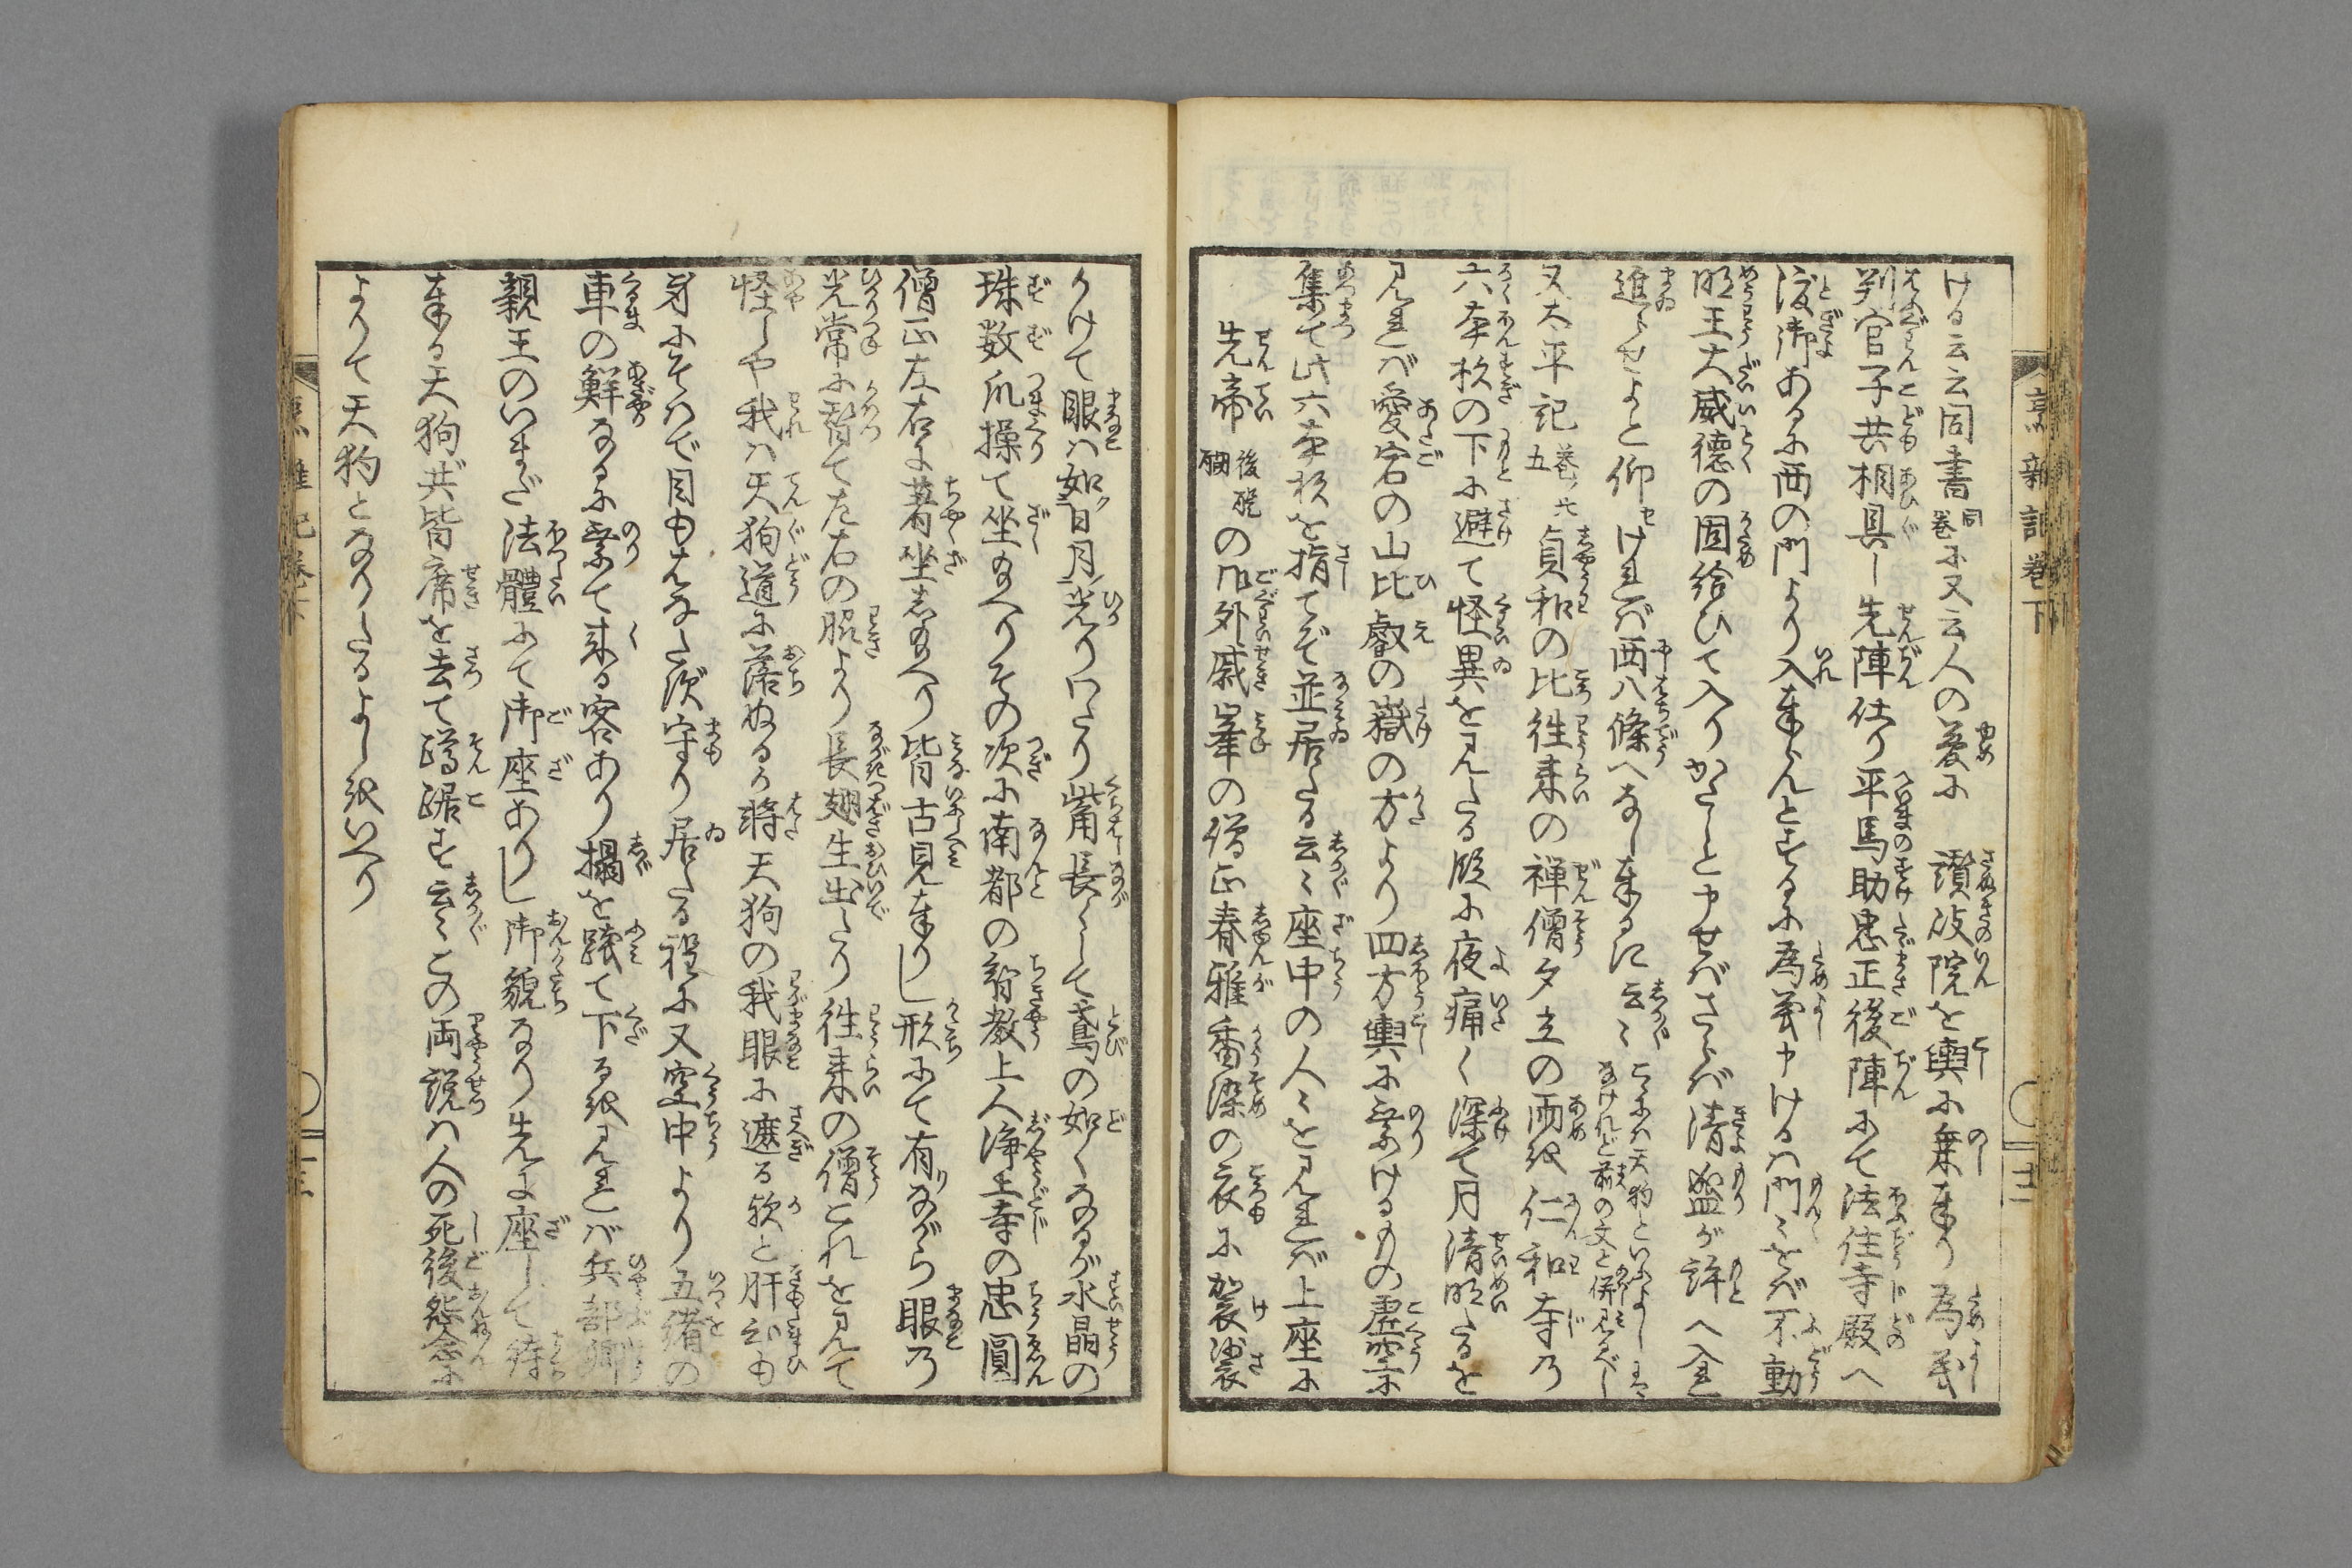 ける云云同書同巻に又云人の夢に　讃岐院を輿に乗奉り為義
判官子共相具し先陣仕り平馬助忠正後陣にて法住寺殿へ
渡御あるに西の門より入奉らんとするに為義申けるは門々をば不動
明王大威徳の固給ひて入りがたしと申せばさらば清盛が許へ入
進らせよと仰せければ西八條へなし奉るに云々こゝには天狗といふよしは
なけれど前の文と併見るべし
又太平記巻ノ廿五貞和の比往来の禅僧夕立の雨を仁和寺の
六本杉の下に避て怪異を見たる段に夜痛く深て月清明たるを
見れば愛宕の山比叡の嶽の方より四方輿に乗けるもの虚空に
集て此六本杉を指てぞ並居たる云々座中の人々を見れば上座に
先帝後醍醐の御外戚峯の僧正春雅香染の衣に袈裟
烹雑記巻下
十二
かけて眼は如日月光りわたり觜長くして鳶の如くなるが水晶の
珠数爪操て坐給へりその次に南都の智教上人浄土寺の忠圓
僧正左右に著坐し給へり皆古見奉りし形にて有ながら眼の
光常に替て左右の脇より長翅生出たり往来の僧これを見て
怪しや我は天狗道に落ぬるか将天狗の我眼に遮る歟と肝心も
身にそはで目もはなたず守り居たる程に又空中より五緒の
車の鮮なるに乗て来る客あり搨を踐て下るを見れば兵部卿
親王のいまだ法體にて御座ありし御貌なり先に座して待
奉る天狗共皆席を去て蹲踞す云々この両説は人の死後怨念に
よりて天狗となりたるよしをいへり
烹雑記巻下
十三